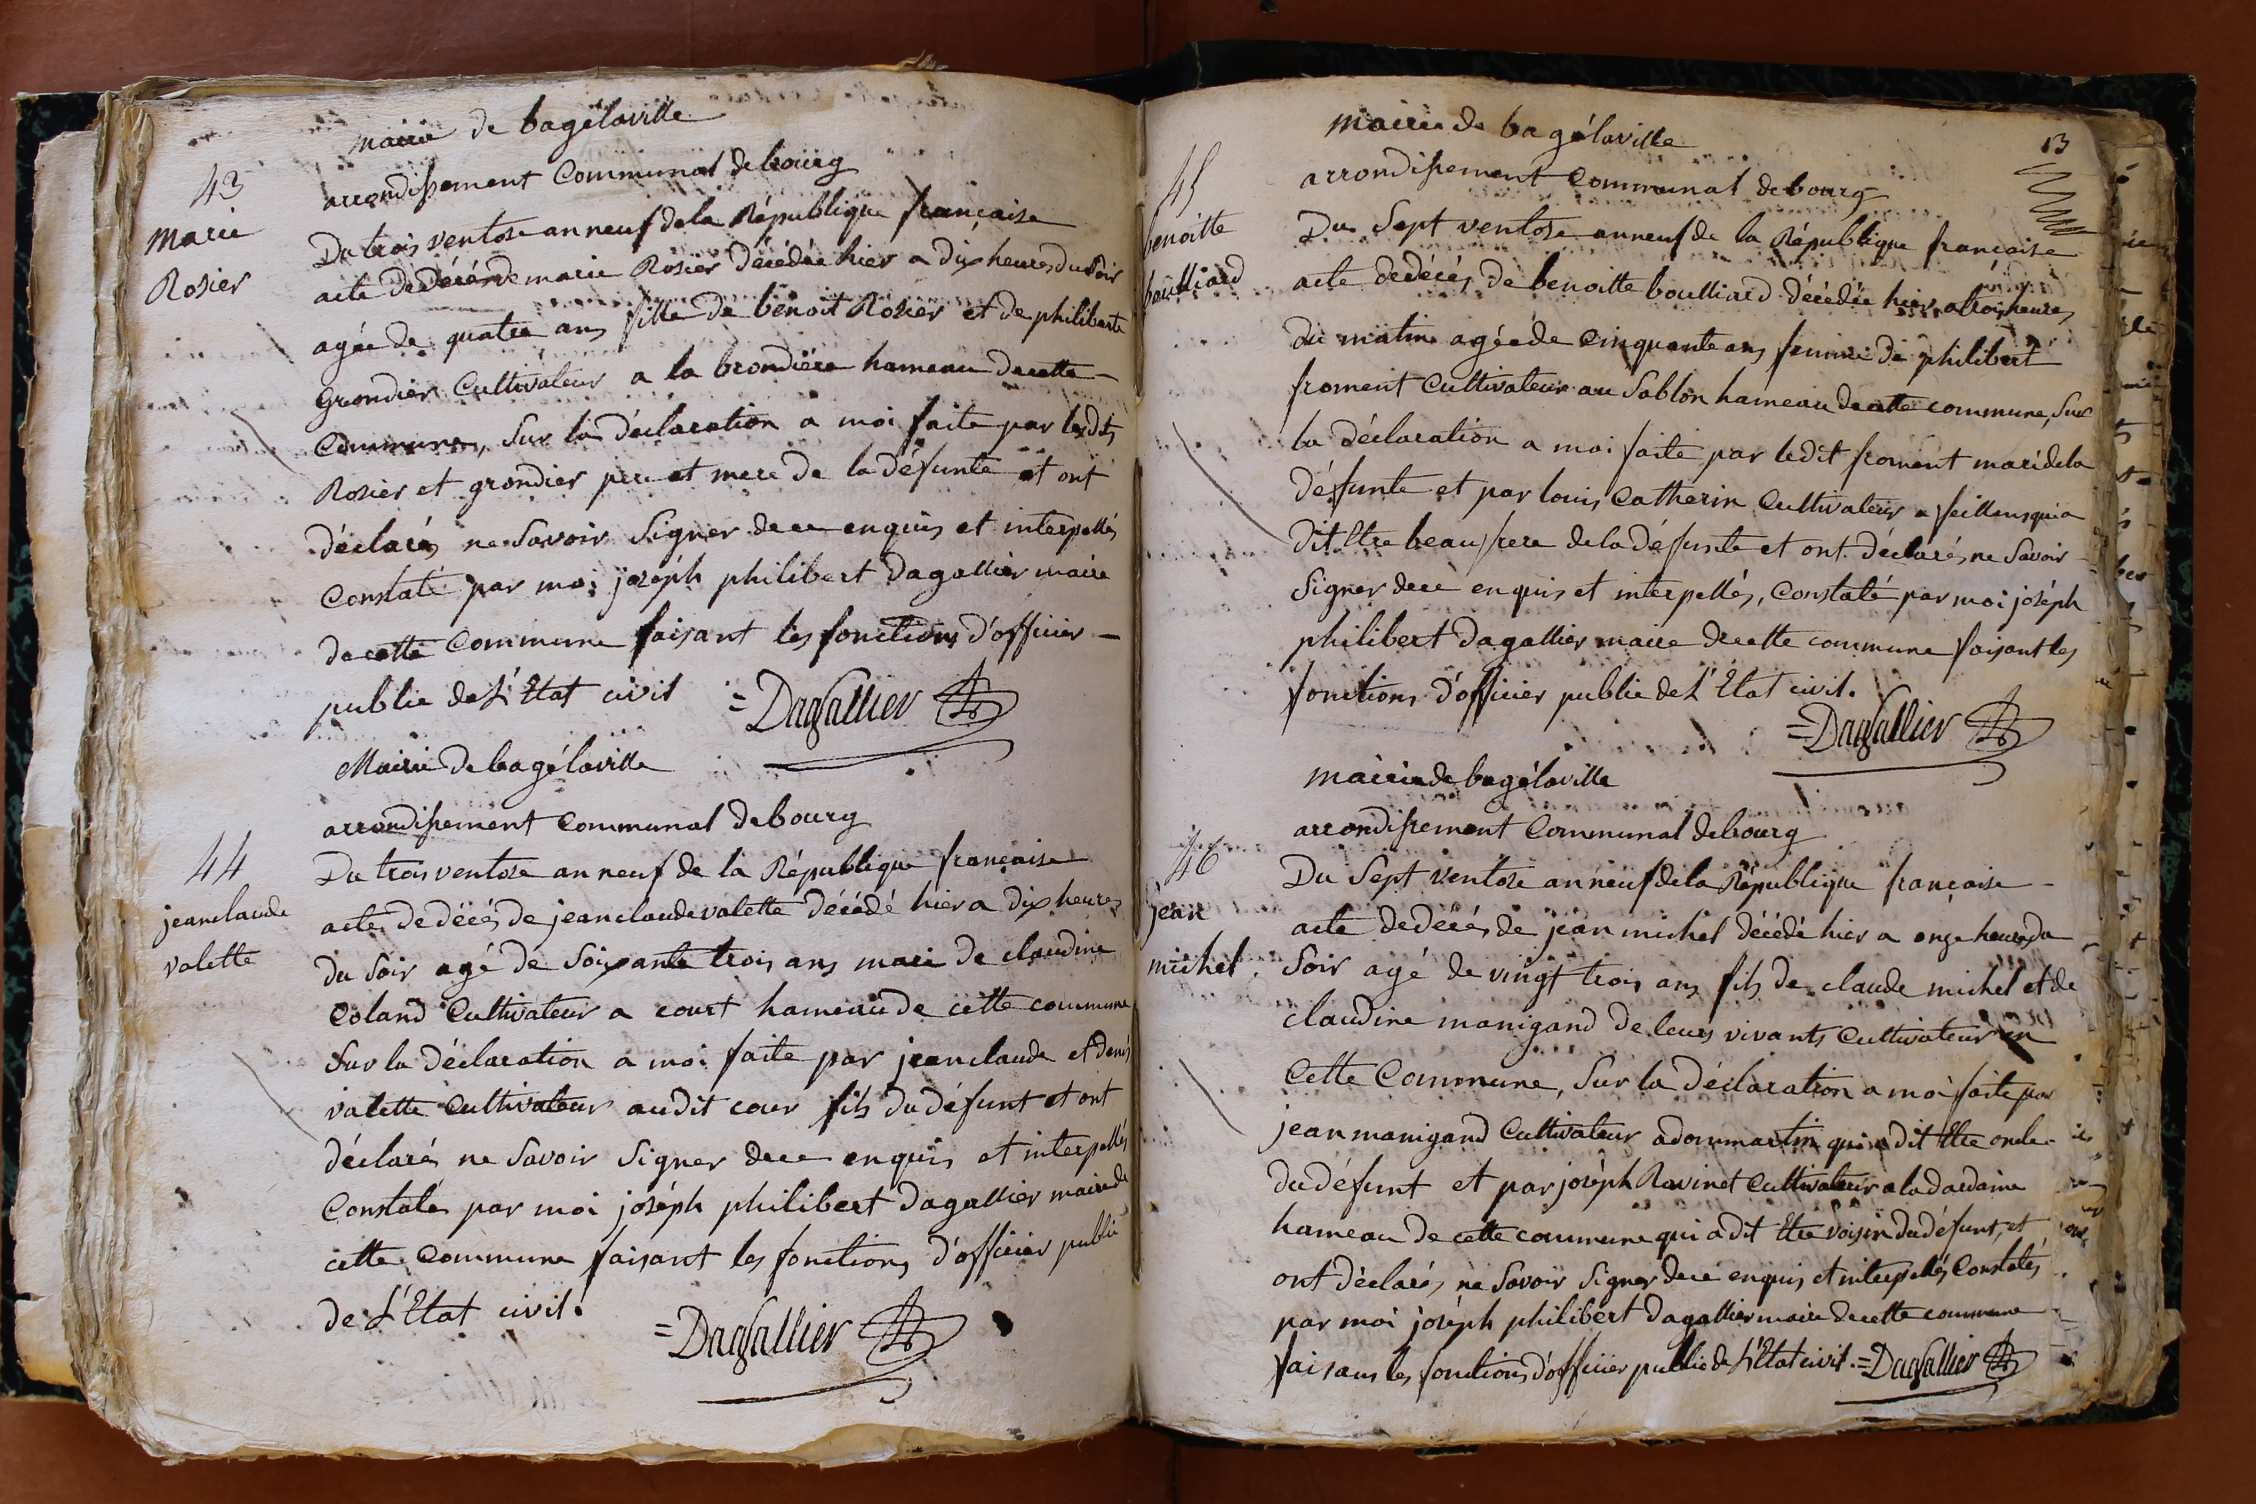 mairie de bagélaville
arrondissement Communal de bourg
43
marie
Rosier
Du trois ventose an neuf de la République française
acte de décés de marie Rosier décédée hier a dix heures du soir
agée de quatre ans fille de benoit Rosier et de philiberte
Grondier Cultivateur a la brondière hameau de cette
Commune, Sur la déclaration a moi faite par lesdits
Rosier et grondier pere et mere de la défunte et ont
déclarés ne Savoir Signer de ce enquis et interpellés
Constaté par moi joséph philibert dagallier maire
de cette Commune faisant les fonctions d'officier
public de L'Etat civil
=Dagallier
Mairie de bagélaville
arrondissement Communal de bourg
44
jeanclaude
valette
Du trois ventose an neuf de la République française
acte de décés de jeanclaude valette décédé hier a dix heures
du Soir agé de Soixante trois ans mari de claudine
Coland Cultivateur a court hameau de cette commune
Sur la déclaration a moi faite par jeanclaude et denis
valette Cultivateur audit cour fils du défunt et ont
déclarés ne Savoir Signer de ce enquis et interpellés
Constatés par moi joséph philibert dagallier maire de
cette Commune faisant les fonctions d'officier public
de L'Etat civil.
=Dagallier
13
mairie de bagélaville
arrondissement Communal de bourg
45
benoitte
boulliard
Du Sept ventose an neuf de la République française
acte de décés de benoitte boulliard décédée hier a trois heures
du matin agée de Cinquante ans femme de philibert
froment Cultivateur au Sablon hameau de cette commune, Sur
la déclaration a moi faite par ledit froment mari de la
défunte et par louis Catherin Cultivateur a feillens qui a
dit Etre beaufrere de la défunte et ont déclarés ne Savoir
Signer de ce enquis et interpellés, Constaté par moi joséph
philibert dagallier maire de cette commune faisant les
fonctions d'officier public de L'Etat civil.
=Dagallier
mairie de bagélaville
arrondissement Communal de bourg
46
jean
michel
Du Sept ventose an neuf de la République française
acte de décés de jean michel décédé hier a onze heures du
Soir agé de vingt trois ans fils de claude michel et de
claudine manigand de leurs vivants Cultivateur en
Cette Commune, Sur la déclaration a moi faite par
jean manigand Cultivateur a dommartin qui a dit Etre oncle
du défunt et par joséph Ravinet Cultivateur a la dardaine
hameau de cette commune qui a dit Etre voisin du défunt, et
ont déclarés ne Savoir Signer de ce enquis et interpellés Constatés
par moi joséph philibert dagallier maire de cette commune
faisans les fonctions d'officier public de L'Etat civil. =Dagallier